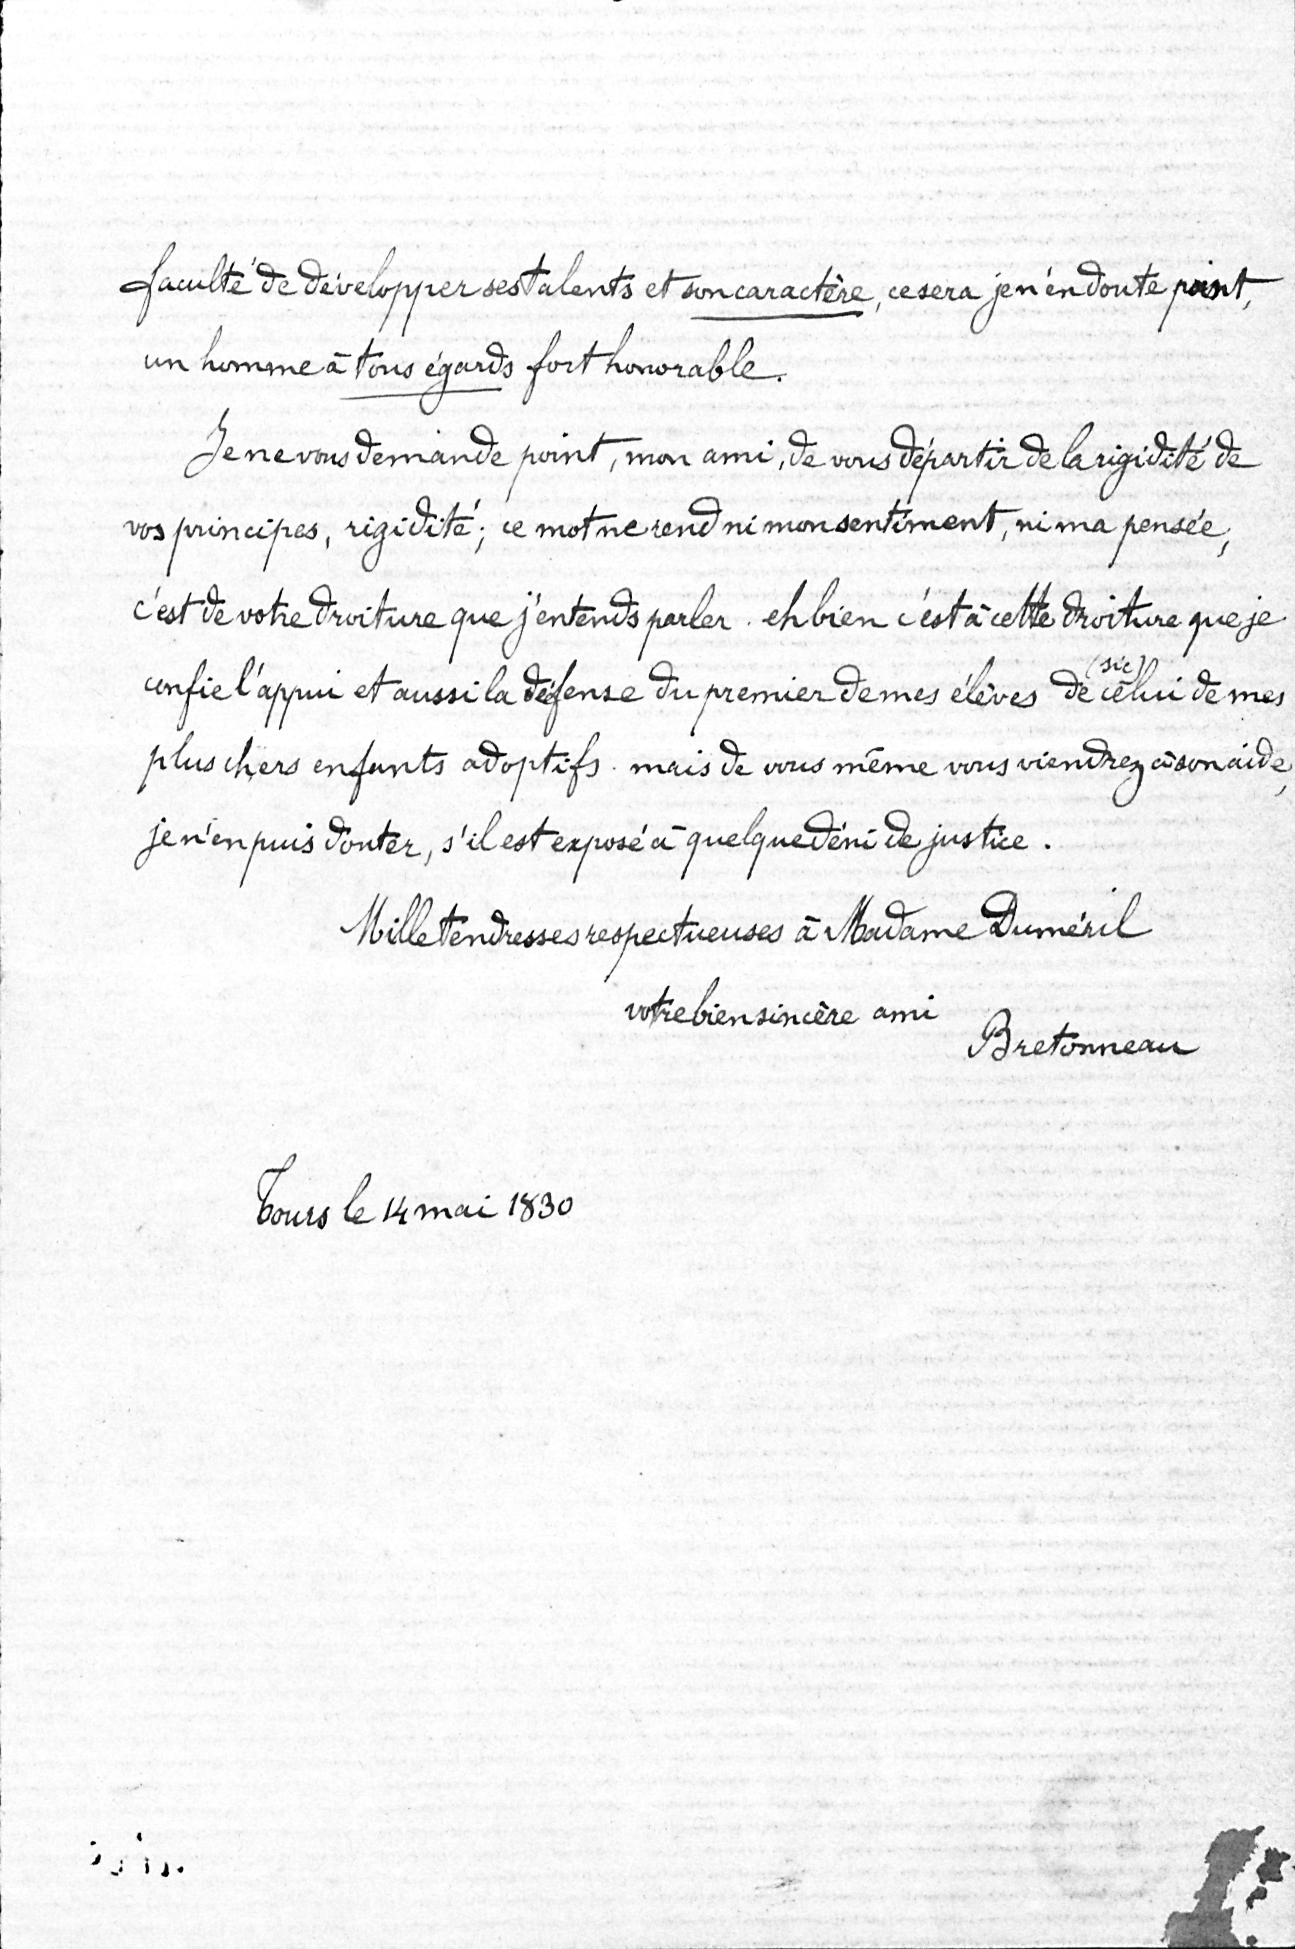 faculté de développer ses talents et son caractère, ce sera je n'en doute point,
un homme à tous égards fort honorable.
Je ne vous demande point, mon ami, de vous départir de la rigidité de
vos principes, rigidité; ce mot ne rend ni mon sentiment, ni ma pensée,
c'est de votre droiture que j'entends parler. eh bien c'est à cette droiture que je
(sic)
confie l'appui et aussi la défense du premier de mes élèves de celui de mes
plus chers enfants adoptifs. mais de vous même vous viendrez à son aide,
je n'en puis douter, s'il est exposé à quelque déni de justice.
Mille tendresses respectueuses à Madame Duméril
votre bien sincère ami
Bretonneau
Tours le 14 mai 1830